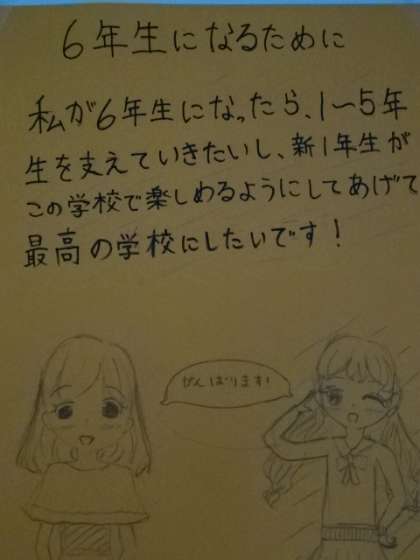 6年生になるために
私が6年生になったら、1〜5年
生を支えていきたいし、新1年生が
この学校で楽しめるようにしてあげて
最高の学校にしたいです！
がんばります!